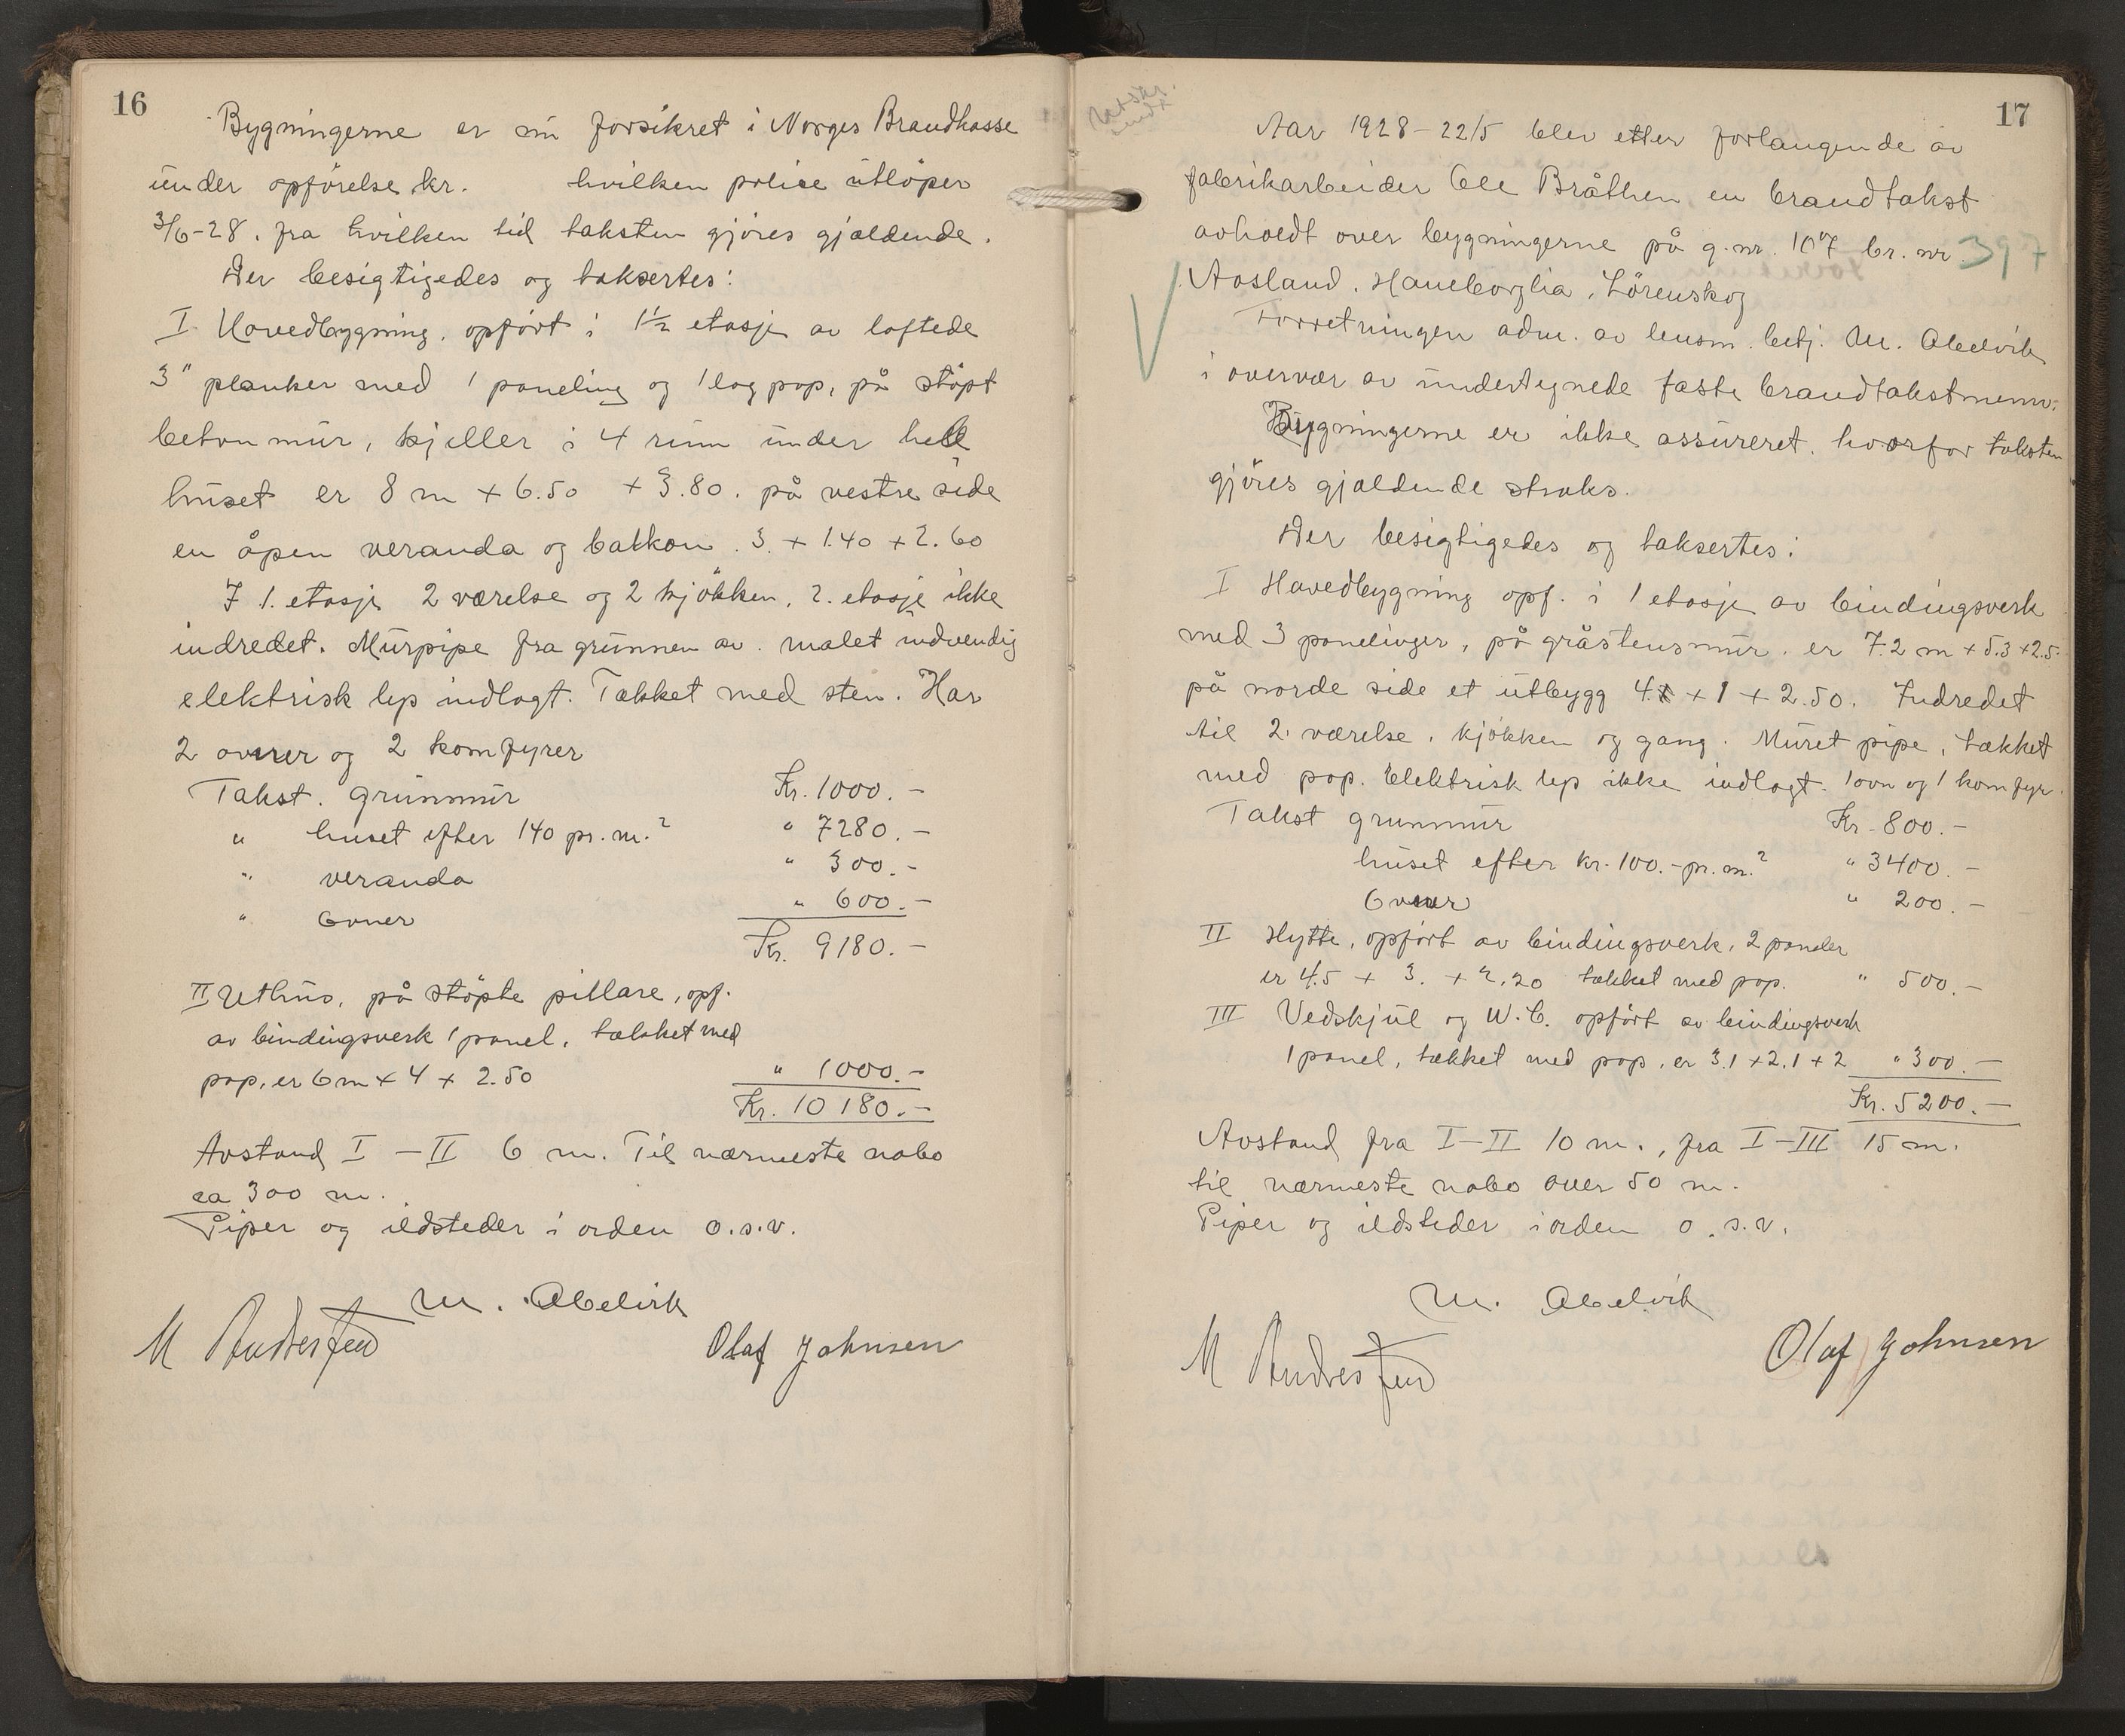 16
Bygningerne er nu forsikret i Norges Brandkasse
under opförelse kr. hvilken police utlöper
3/6-28. fra hvilken tid taksten gjöres gjældende.
Der besigtigedes og taksertes:
I Hovedbygning, opfört i 1 1/2 etasje av loftede
3" planker med 1 paneling og 1 lag pap, på støpt
betonmur, kjeller i 4 rum under hele
huset er 8 m + 6.50 + 3.80. på vestre side
en åpen veranda og balkon. 3. + 1.40 + 2.60
I 1. etasje 2 værelse og 2 kjökken, 2. etasje ikke
indredet. Murpipe fra grunnen av. malet indvendig
elektrisk lys indlagt. Tækket med sten. Har
2 ovner og 2 komfyrer
Takst. grunmur Kr. 1000.-
" huset efter 140 pr. m.² " 7280.-
" veranda " 300.-
" Ovner " 600.-
Kr. 9180.-
II Uthus, på støpte pillare, opf.
av bindingsverk 1 panel, tækket med
pap, er 6 m + 4 + 2.50 " 1000.-
Kr. 10180.-
Avstand I - II 6 m. Til nærmeste nabo
ca 300 m.
Piper og ildsteder i orden o.s.v.
M. Abelvik
M Andresen
Olaf Johnsen
17
Aar 1928 - 22/5 blev etter forlangende av
fabrikarbeider Ole Bråthen en brandtakst
avholdt over bygningerne på g.nr. 107 br. nr 397
Aasland, Haneborglia, Lörenskog
Forretningen adm. av lensm. betj. M. Abelvik
i overvær av undertegnede faste brandtakstmenn.
Bygningerne er ikke assureret. hvorfor taksten
gjöres gjældende straks.
Der besigtigedes og taksertes:
I Hovedbygning opf. i 1 etasje av bindingsverk
med 3 panelinger, på gråstensmur. er 7.2 m + 5.3 + 2.5.
på nordre side et utbygg + 1 + 2.50. Indredet
til 2 værelse, kjökken og gang. Muret pipe, tækket
med pap. Elektrisk lys ikke indlagt. 1 ovn og 1 komfyr.
Takst grunmur Kr. 800.-
huset efter kr. 100.- pr. m.² " 3400.-
Ovner " 200.-
II Hytte, opfört av bindingsverk, 2 paneler
er 4.5 + 3. + 2.20 tækket med pap. " 500.-
III Vedskjul og W.C. opfört av bindingsverk
1 panel, tækket med pap, er 3.1 + 2.1 + 2 " 300.-
Kr. 5200.-
Avstand fra I-II 10 m., fra I-III 15 m.
til nærmeste nabo over 50 m.
Piper og ildsteder i orden o.s.v.
M. Abelvik
M Andresen
Olaf Johnsen